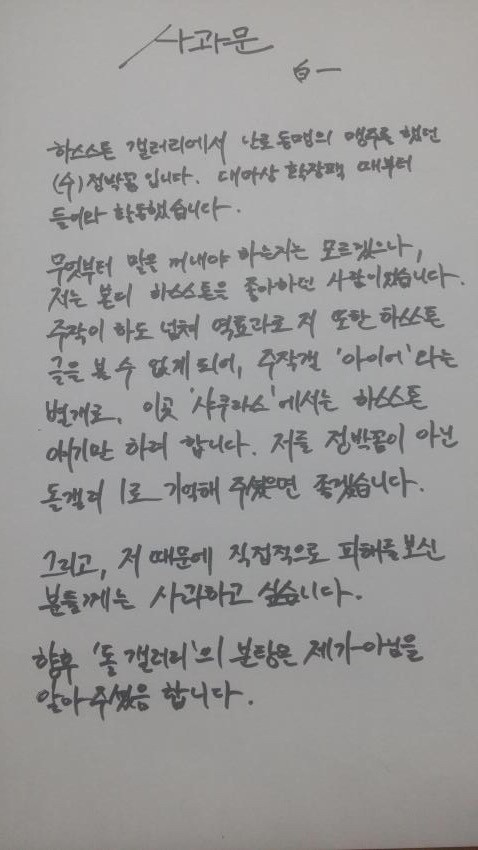 사과문
白一
하스스톤 갤러리에서 난로동맹의 맹주를 했던
(수)정박꼼입니다. 대마상 확장팩 때부터
들어와 활동했습니다.
무엇부터 말을 꺼내야 하는지는 모르겠으나,
저는 본디 하스스톤을 좋아하던 사람이었습니다.
주작이 하도 넘쳐 역효과로 저 또한 하스스톤
글을 볼 수 없게 되어, 주작갤 '아이어'와는
별개로, 이곳 '샤쿠라스'에서는 하스스톤
얘기만 하려 합니다. 저를 정박꼼이 아닌
돌갤러 1로 기억해 주셨으면 좋겠습니다.
그리고, 저 때문에 직접적으로 피해를 보신
분들께는 사과하고 싶습니다.
향후 '돌 갤러리'의 분탕은 제가 아님을
알아 주셨음 합니다.